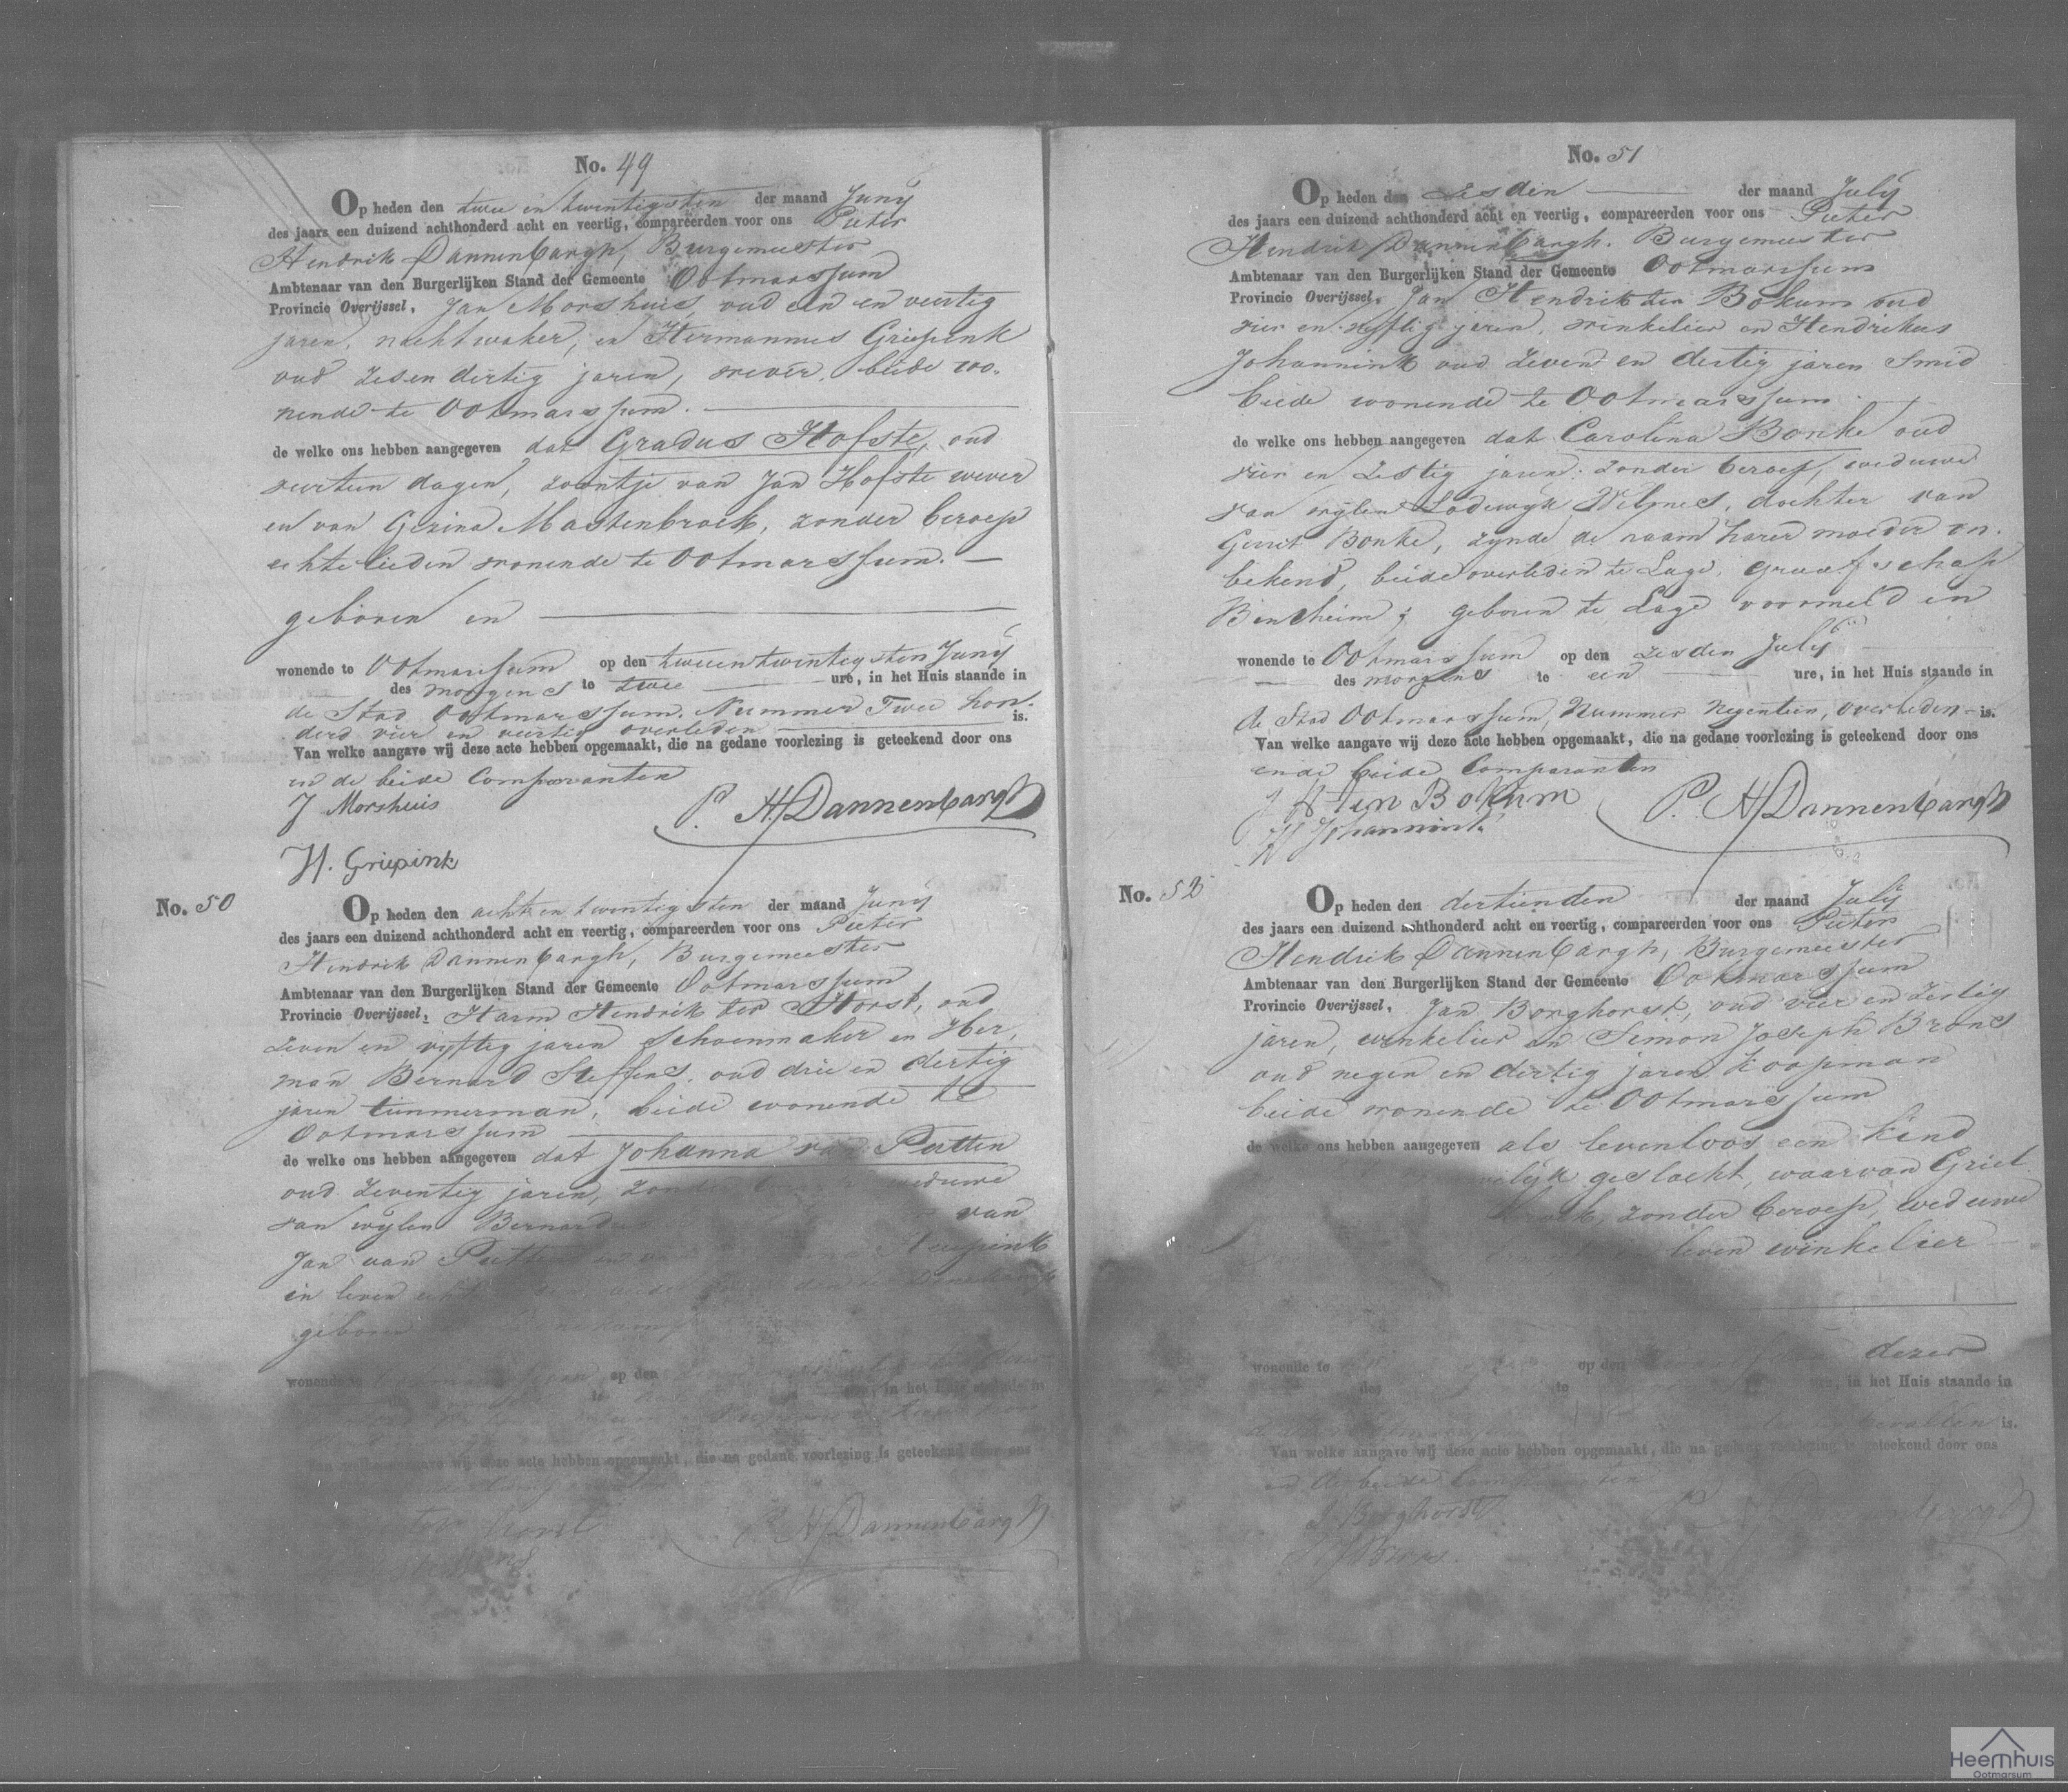 No. 49
Op heden den twee en twintigsten der maand Junij
des jaars een duizend achthonderd acht en veertig, compareerden voor ons Pieter
Hendrik Dannenbargh, Burgemeester
Ambtenaar van den Burgerlijken Stand der Gemeente Ootmarssum
Provincie Overijssel, Jan Morshuis, oud een en veertig
jaren, nachtwaker, en Hermannus Griepink
oud zesendertig jaren, wever, beide wo-
nende te Ootmarssum.
de welke ons hebben aangegeven dat Gradus Hofste, oud
veertien dagen, zoontje van Jan Hofste wever
en van Gezina Mastenbroek, zonder beroep
echtelieden wonende te Ootmarssum.
geboren en
wonende te Ootmarssum op den tweeentwintigsten Junij
des morgens te twee ure, in het Huis staande in
de Stad Ootmarssum, Nummer Twee hon-
derd vier en veertig overleden is.
Van welke aangave wij deze acte hebben opgemaakt, die na gedane voorlezing is geteekend door ons
en de beide Comparanten
J Morshuis P. H. Dannenbargh
H. Griepink
No. 50
Op heden den acht en twintigsten der maand Junij
des jaars een duizend achthonderd acht en veertig, compareerden voor ons Pieter
Hendrik Dannenbargh, Burgemeester
Ambtenaar van den Burgerlijken Stand der Gemeente Ootmarssum
Provincie Overijssel, Harm Hendrik ter Horst, oud
zeven en vijftig jaren Schoenmaker en Her-
man Bernard Steffens, oud drie en dertig
jaren timmerman, beide wonende te
Ootmarssum
de welke ons hebben aangegeven dat Johanna van Putten
oud zeventig jaren, zonder weduwe
van wijlen Bernardus van
Jan van Putten en van
in leven
geboren
wonende te op den
te in het Huis staande in
Van welke aangave wij deze acte hebben opgemaakt, die na gedane voorlezing is geteekend door ons
ter Horst P. H. Dannenbargh
No. 51
Op heden den zesden der maand Julij
des jaars een duizend achthonderd acht en veertig, compareerden voor ons Pieter
Hendrik Dannenbargh, Burgemeester
Ambtenaar van den Burgerlijken Stand der Gemeente Ootmarssum
Provincie Overijssel, Jan Hendrik ten Bokum oud
vier en vijftig jaren, winkelier en Hendrikus
Johannink oud zeven en dertig jaren Smid
beide wonende te Ootmarssum
de welke ons hebben aangegeven dat Carolina Bonke oud
vier en zestig jaren, zonder beroep, weduwe
van wijlen Lodewyk Wilmes, dochter van
Gerrit Bonke, zynde de naam harer moeder on-
bekend, beide overleden te Lage, Graafschap
Bentheim; geboren te Lage voormeld en
wonende te Ootmarssum op den zesden Julij
des morgens te een ure, in het Huis staande in
de Stad Ootmarssum, Nummer Negentien, overleden is.
Van welke aangave wij deze acte hebben opgemaakt, die na gedane voorlezing is geteekend door ons
en de beide Comparanten
J H ten Bokum P. H. Dannenbargh
H Johannink
No. 52
Op heden den dertienden der maand Julij
des jaars een duizend achthonderd acht en veertig, compareerden voor ons Pieter
Hendrik Dannenbargh, Burgemeester
Ambtenaar van den Burgerlijken Stand der Gemeente Ootmarssum
Provincie Overijssel, Jan Borghorst, oud vier en zestig
jaren, winkelier en Semon Joseph Brons
oud negen en dertig jaren koopman
beide wonende te Ootmarssum
de welke ons hebben aangegeven als levenloos een kind
geslacht, waarvan Griet
zonder beroep, weduwe
leven winkelier
wonende te op den dezer
des te ure, in het Huis staande in
bevallen is.
Van welke aangave wij deze acte hebben opgemaakt, die na gedane voorlezing is geteekend door ons
en de beide Comparanten
J. Borghorst
Heemhuis
Ootmarsum